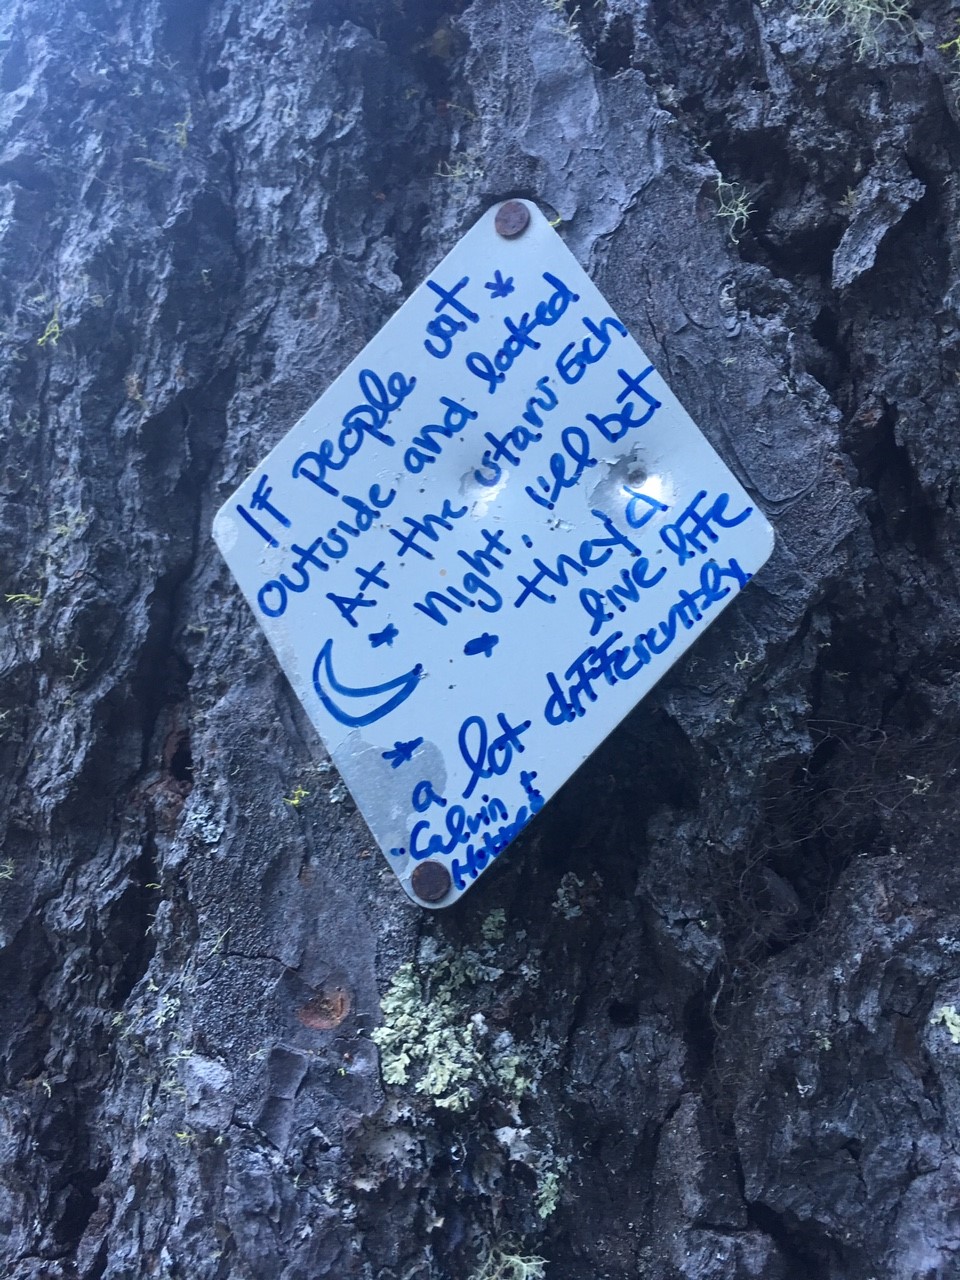 IF people sit
outside and looked
At the stars Ech
night, i'll bet
they'd
live life
a lot differently
- Calvin +
Hobbes